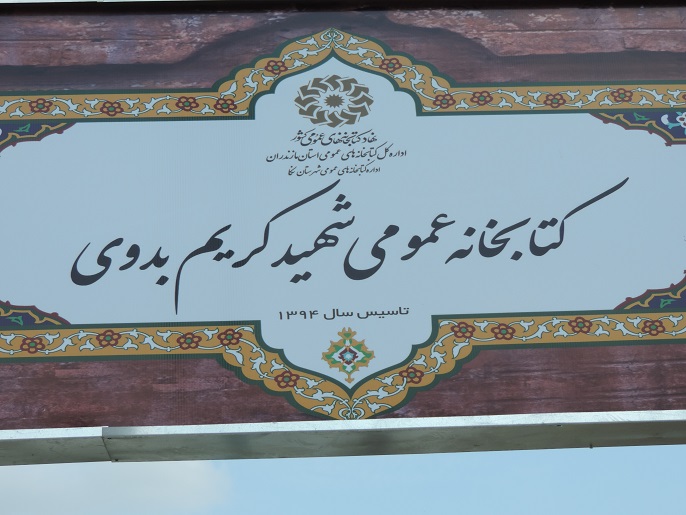 نهاد کتابخانه‌های عمومی کشور
اداره کل کتابخانه‌های عمومی استان مازندران
اداره کتابخانه‌های عمومی شهرستان نکا
کتابخانه عمومی شهید کریم بدوی
تاسیس سال ۱۳۹۴